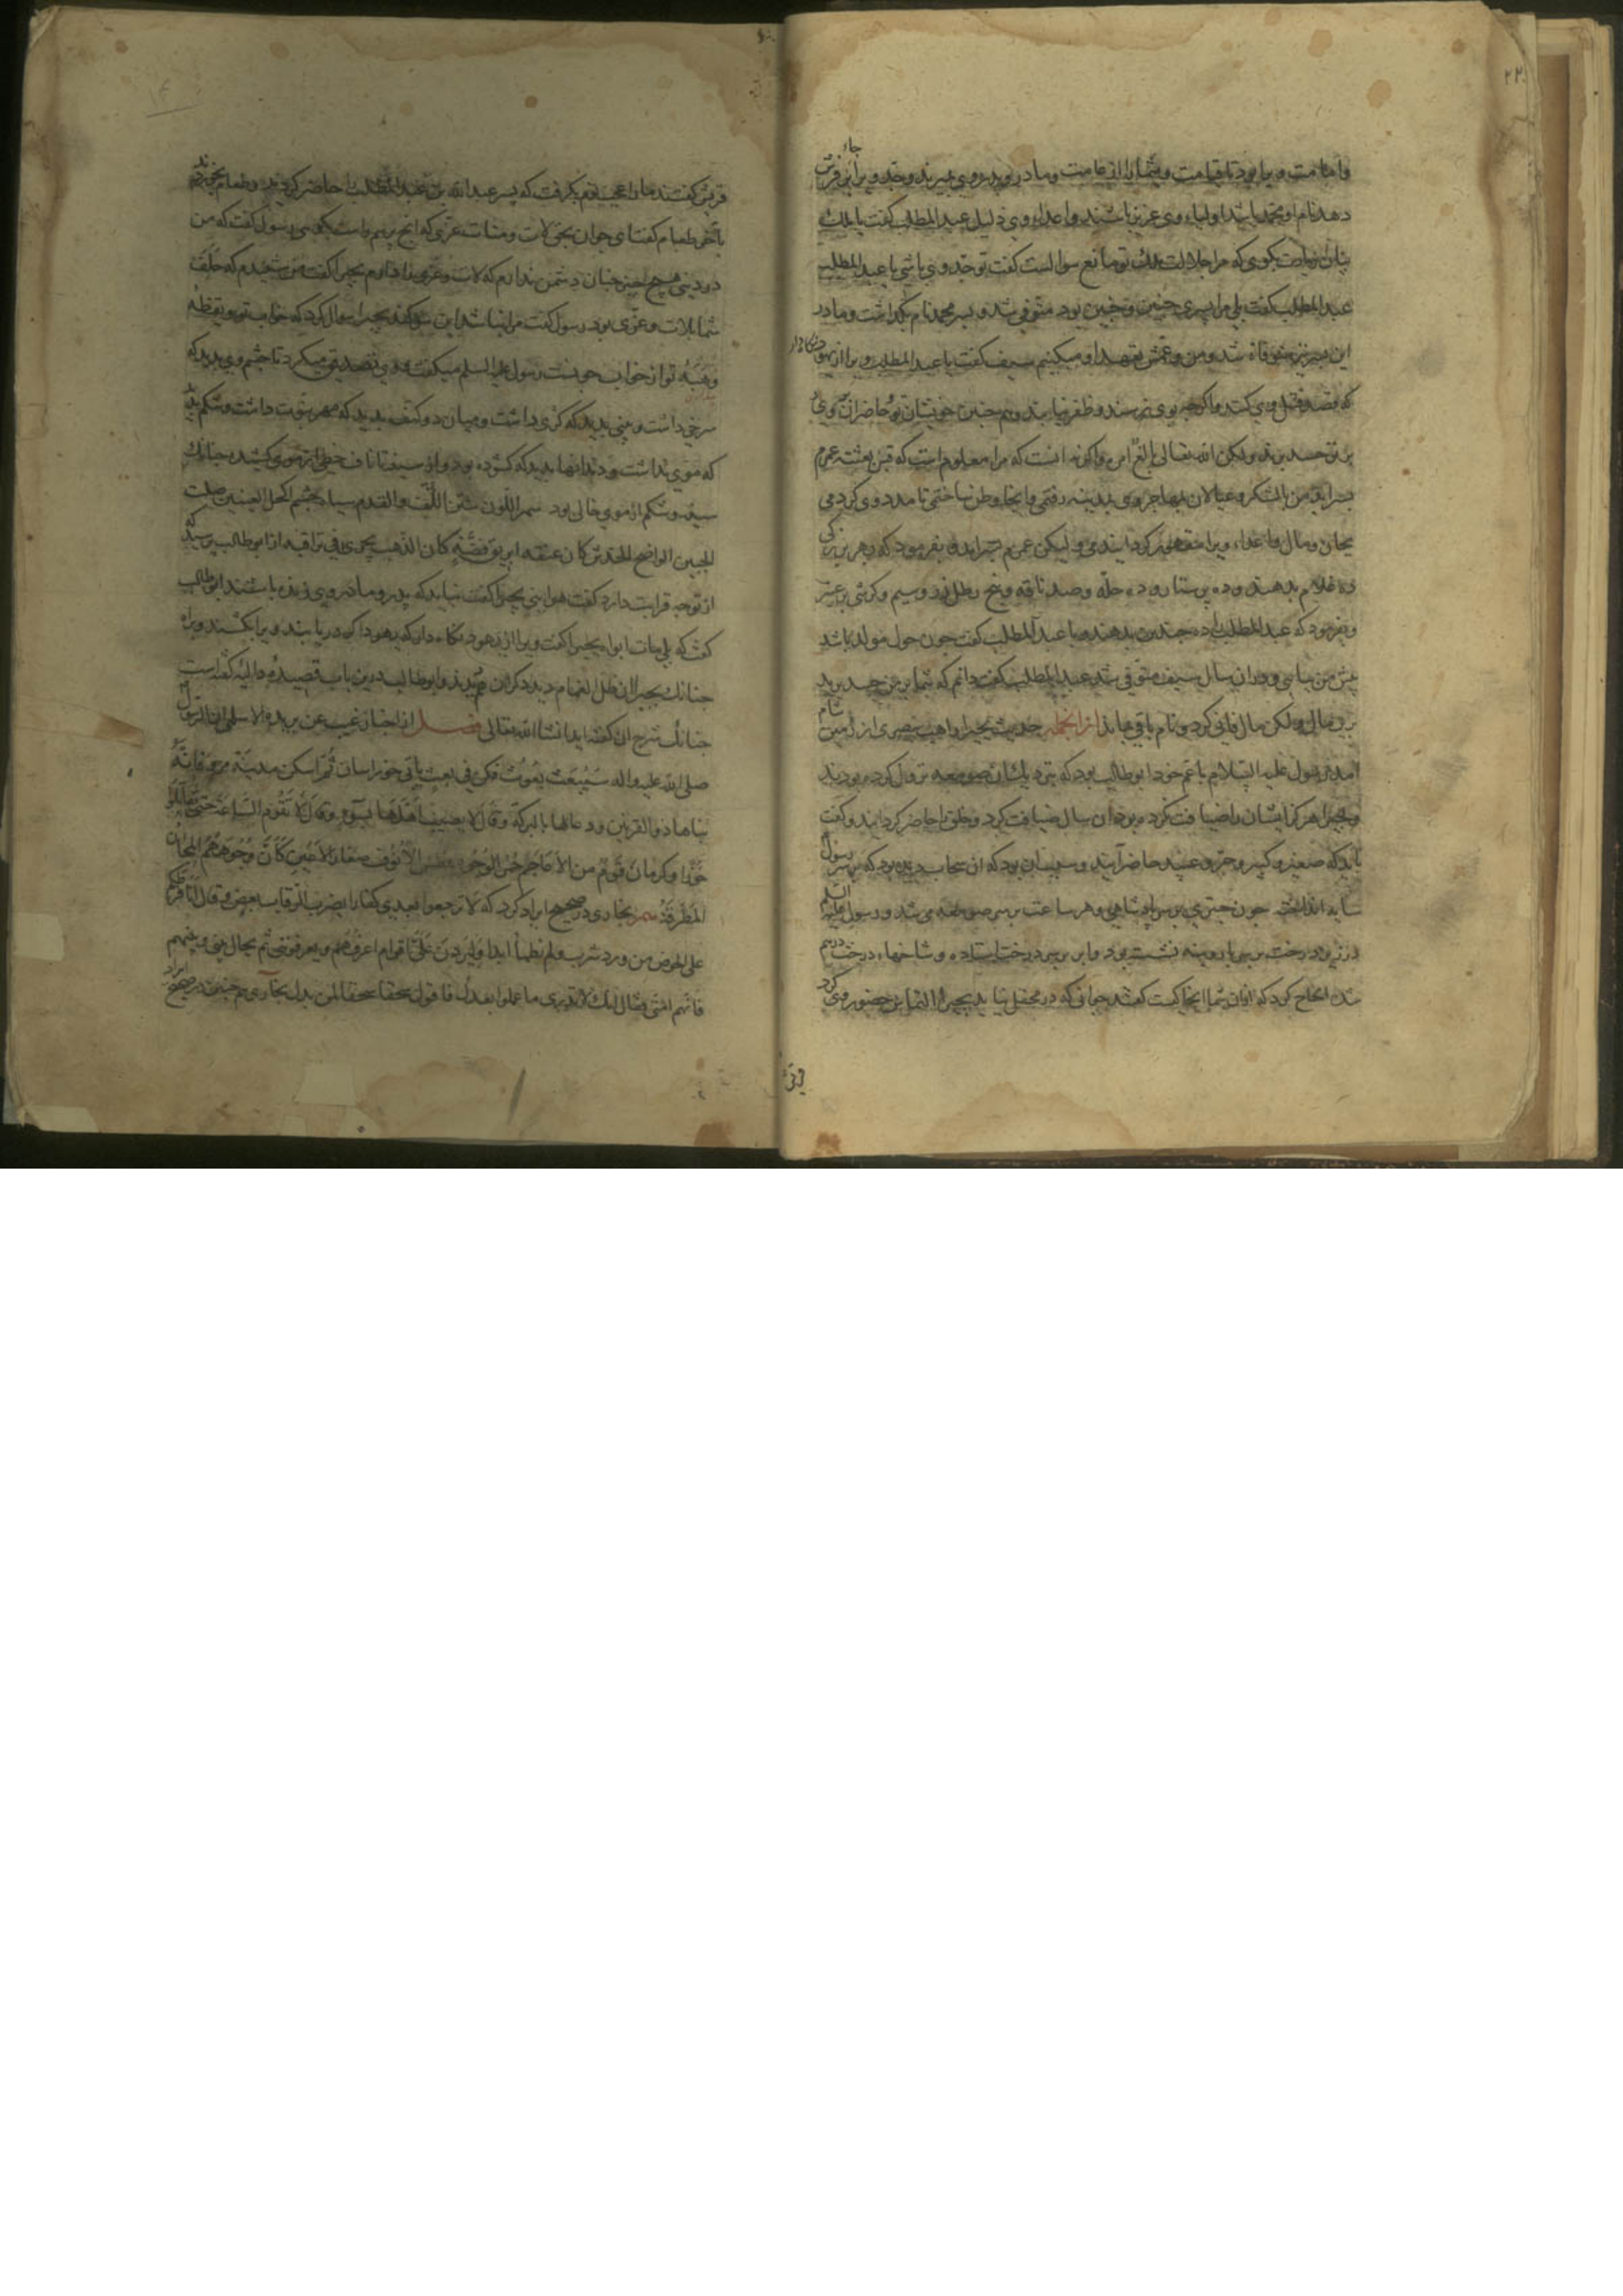 ۲۲
جاء
و امامت ویرا بود تا قیامت و شما را از عامت و مادر و پدر وی بمیرند و جد و
دهد نام او محمد باشد اولیاء وی عزیز باشند و اعداء وی ذلیل عبد المطلب کفت یا ملک
بکوی که مرا جلالت ملک تو مانع سوالست کفت تو جد وی باشی یا عبد المطلب
عبد المطلب کفت بلی مرا پسری چنین و چنین بود متوفی شد و پسر محمد نام بکذاشت و مادر
این پسر نیز متوفاة شد و من و عمش تعهد او میکنیم سیف کفت یا عبد المطلب ویرا از یهود
که قصد قتل وی کنند و اکرچه بوی نرسند و ظفر نیابند و هم چنین خویشان تو حاضران
بر تو حسد برند ولکن الله تعالی بالغ امره و اکرنه انست که مرا معلوم است که قبل بعثته عمرم
بسر آید من با لشکر و عیالان مهاجر وی بمدینه رفتمی و انجا وطن ساختمی تا مدد وی کردمی
بجان و مال و اعداء ویرا مقهور کردانیدمی ولیکن عمرم بسر آید و بفرمود که بهر یکی
ده غلام بدهند و ده پرستار و ده حله و صد ناقه و پنج رطل زر و سیم و کرشی پر عنبر
و بفرمود که عبد المطلب را ده چندین بدهند و با عبد المطلب کفت چون حول مولد باشد
پیش من بیایی و در ان سال سیف متوفی شد عبد المطلب کفت دانم که شما بر من حسد برید
برین مال ولکن مال فانی کردد و نام باقی ماند از انجمله حدیث بحیرا راهب بصری از زمین شام
امد رسول علیه السلام با عم خود ابو طالب بود که نزدیک ان صومعه نزول کرده بودند
و بحیرا هرکز ایشان را ضیافت نکرده بود ان سال ضیافت کرد و خلق را حاضر کردانید و کفت
باید که صغیر و کبیر و حر و عبد حاضر آیند و سبب ان بود که ان سحاب دیده بود که بر سر رسول
سایه انداخته چون چتری بر سر پادشاهی و هر ساعت بر سر صومعه می شد و رسول علیه السلم
در زیر درخت نشسته بود و ابر بر سر درخت ایستاده و شاخهاء درخت درهم
شده الحاح کرد که از ان شما اینجا کیست کفتند جوانی که در محفل نیاید بحیرا التماس حضور وی کرد
قریش کفتند ما را عیب لازم بکرفت که پسر عبد الله بن عبد المطلب را حاضر کردند و طعام بخوردند
باخر طعام کفت ای جوان بحق لات و منات و عزی که انچ پرسم راست بکوی رسول کفت که من
در دنیا هیچ چیز چنان دشمن ندارم که لات و عزی را بحیرا کفت من شنیدم که حلف
شما بلات و عزی بود رسول کفت مرا نباشد این سوکند بحیرا سوال کرد که خواب تو و یقظه
و هیبه تو از خواب چونست رسول علیه السلم میکفت و وی تصدیق میکرد تا چشم وی بدید که
سرخی داشت و بینی بدید که کژی داشت و میان دو کتف بدید که مهر نبوت داشت و شکم بدید
که موی نداشت و دندانها بدید که کشوده بود و از سینه تا ناف خطی از موی کشیده چنانک
سینه و شکم از موی خالی بود سمر اللون شثن الکف و القدم سیاه چشم اکحل العینین صلت
الجبین الواضح الخدین کان عنقه ابریق فضة کان الذهب یجری فی تراقیه از ابو طالب پرسید که
از تو چه قرابت دارد کفت هو ابنی بحیرا کفت نباید که پدر و مادر وی زنده باشند ابو طالب
کفت که بلی مات ابواه بحیرا کفت ویرا از یهود نکاه دار که یهود اکر دریابند ویرا بکشند
چنانک بحیرا ان ظل الغمام دید دکران هم بدیدند و ابو طالب درین باب قصیده دالیه کفته است
چنانک شرح ان کفته اید انشا الله تعالی فصل از اخبار غیب عن بریده الاسلمی ان الرسول
صلی الله علیه و اله سیبعث بعوث فکن فی بعث یأتی خوراسان ثم اسکن مدینة مرو فانه
بناها ذو القرنین و دعا لها بالبرکة و قال لا یصیب اهلها سوء و قال لا تقوم الساعة حتی تقاتلوا
خوزا و کرمان قوم من الاعاجم حمر الوجوه فطس الانوف صغار الاعین کأن وجوههم المجان
المطرقة بخاری در صحیح ایراد کرد که لا ترجعوا بعدی کفارا یضرب الرقاب بعض و قال انا فرطکم
علی الحوض من ورد شرب و لم یظمأ ابدا و لیردن علی اقوام اعرفهم و یعرفوننی ثم یحال بینی و بینهم
فانهم امتی فقال انک لا تدری ما عملوا بعدک فاقول سحقا سحقا لمن بدل بخاری هم چنین در صحیح